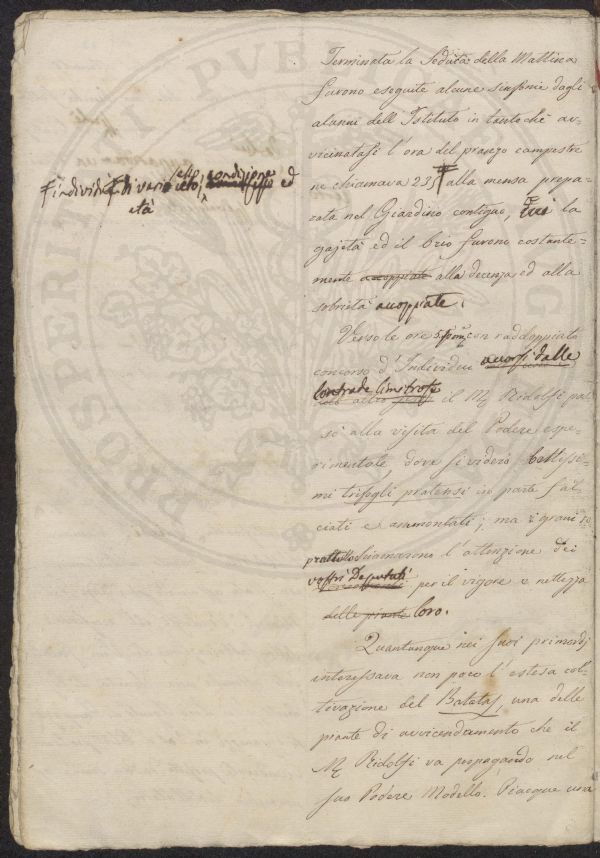 Terminata la Seduta della Mattina
furono eseguite alcune sinfonie dagli
alunni dell'Istituto in tanto chè av-
vicinatasi l'ora del pranzo campestre
ne chiamava 235 alla mensa prepa-
rata nel Giardino contiguo, qui la
gajetà ed il brio furono costante-
mente accoppiate alla decenza ed alla
sobrietà accoppiate.
individui di vario sesso, condizione ed
età
Verso le ore 5 con raddoppiato
concorso d'Individui accorsi dalle
contrade limitrofe il Mse Ridolfi pas-
sò alla visita del Podere espe-
rimentale dove si viderò bellissi-
mi trifogli pratensi in parte fal-
ciati e ammontati; ma i grani
prattutto richiamarono l'attenzione dei
vostri Deputati per il vigore e nettezza
delle piante loro.
Quantunque nei suoi primordj
interessava non poco l'estesa col-
tivazione del Batatas, una delle
piante di avvicendamento che il
Mse Ridolfi va propagando nel
suo Podere Modello. Piacque una
PROSPERITATI PUBLICAE